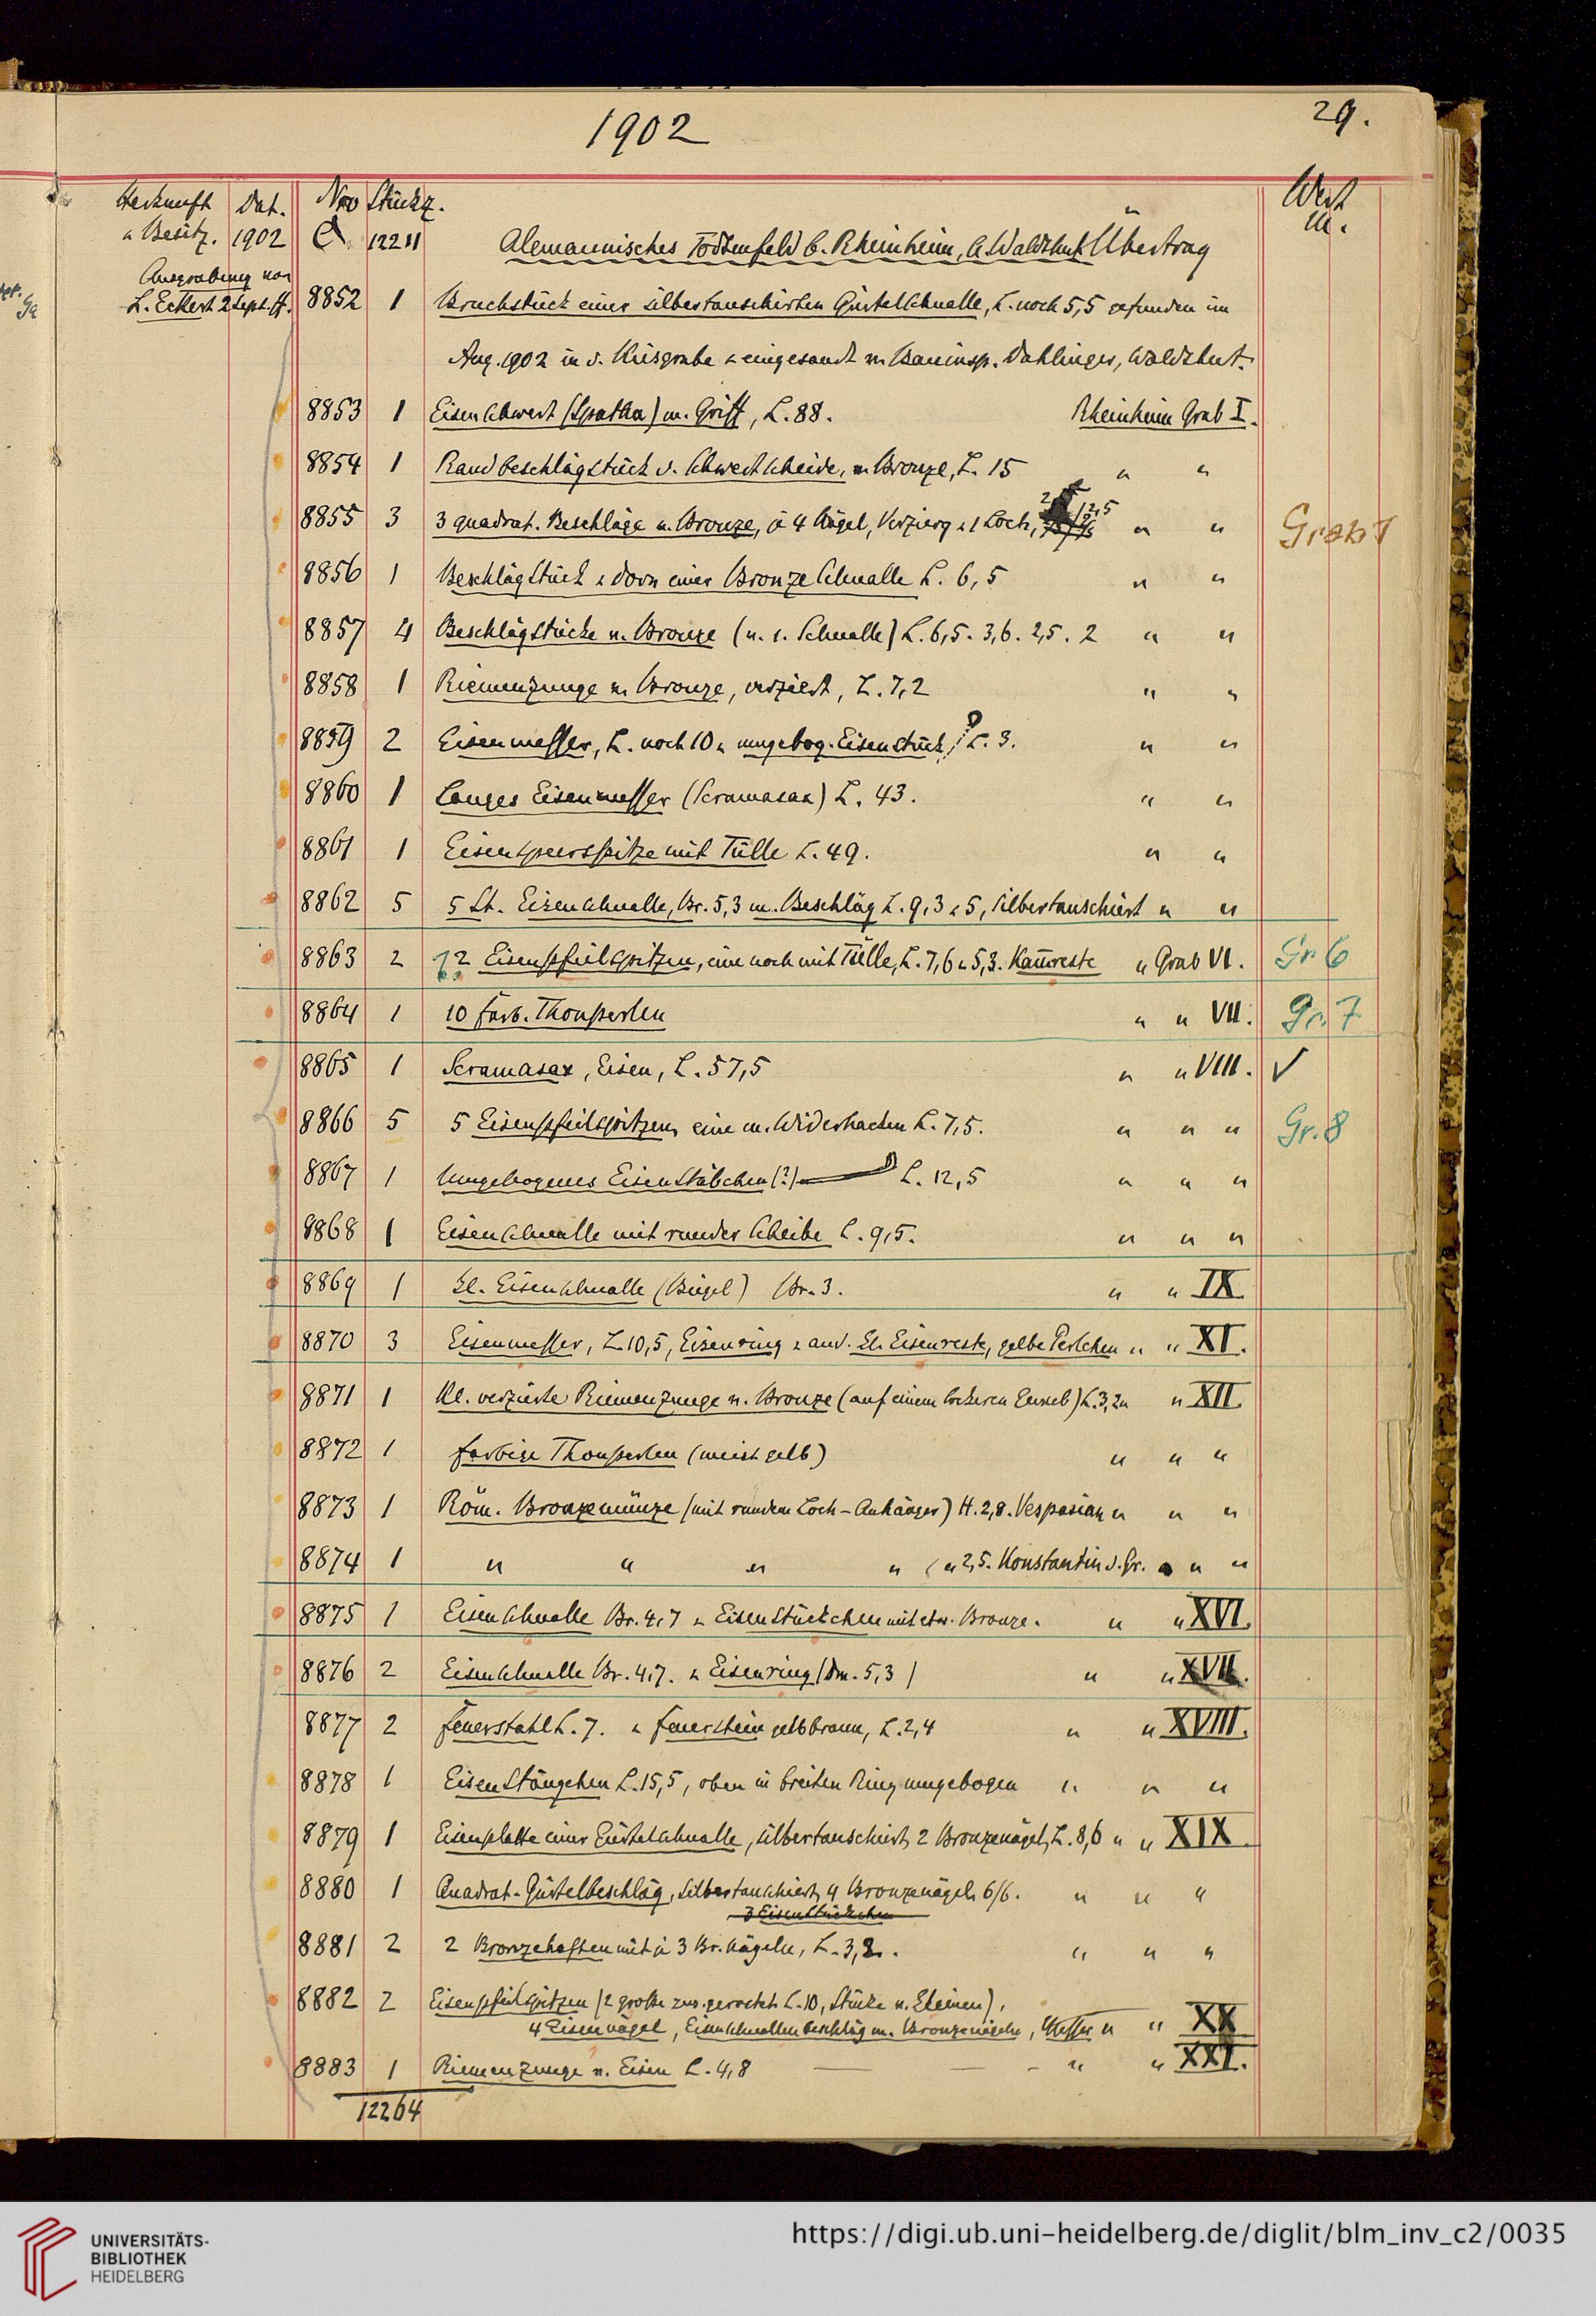 1902
29.
Herkunft Dat. Nro Stückz. Wert
u. Besitz. 1902 C. 12211 Alemannisches Todtenfeld b. Rheinheim, A. Waldshut Übertrag M.
Ausgrabung von
L. Eckert 2 Sept. ff. 8852 1 Bruchstück einer silbertauschirten Gürtelschnalle, L. noch 5,5 gefunden im
Aug. 1902 in d. Kiesgrube u. eingesandt v. Bauinsp. Dahlinger, Waldshut.
8853 1 Eisenschwert (Spatha) m. Griff, L. 88. Rheinheim Grab I.
8854 1 Randbeschlägstück d. Schwertscheide, v. Bronze, L. 15 " "
8855 3 3 quadrat. Beschläge v. Bronze, à 4 Nägel, Verzierg u. 1 Loch, 2,5/2,5 " " Grab I
8856 1 Beschlägstück u. Dorn einer Bronzeschnalle L. 6,5 " "
8857 4 Beschlägstücke v. Bronze (v. 1. Schnalle) L. 6,5. 3,6. 2,5. 2 " "
8858 1 Riemenzunge v. Bronze, verziert, L. 7,2 " "
8859 2 Eisenmesser, L. noch 10 u. umgebog. Eisenstück, L. 3. " "
8860 1 Langes Eisenmesser (Scramasax) L. 43. " "
8861 1 Eisenspeerspitze mit Tülle L. 49. " "
8862 5 5 St. Eisenschnalle, Br. 5,3 m. Beschläg L. 9,3 u. 5, silbertauschiert " "
8863 2 2 Eisenpfeilspitzen, eine noch mit Tülle, L. 7,6 u. 5,3. Kammreste " Grab VI. Gr. 6
8864 1 10 farb. Thonperlen " " VII. Gr. 7
8865 1 Scramasax, Eisen, L. 57,5 " " VIII. ✓
8866 5 5 Eisenpfeilspitzen, eine m. Widerhacken L. 7,5. " " " Gr. 8
8867 1 Umgebogenes Eisenstäbchen (?) L. 12,5 " " "
8868 1 Eisenschnalle mit runder Scheibe L. 9,5. " " "
8869 1 kl. Eisenschnalle (Bügel) Br. 3. " " IX.
8870 3 Eisenmesser, L. 10,5, Eisenring u. and. kl. Eisenreste, gelbe Perlchen " " XI.
8871 1 Kl. verzierte Riemenzunge v. Bronze (auf einem L. 3,2 " " XII.
8872 1 farbige Thonperlen (meist gelb) " " "
8873 1 Röm. Bronzemünze (mit rundem Loch - Anhänger) H. 2,8. Vespasian " " "
8874 1 " " " " ( " 2,5. Konstantin d. Gr. " " "
8875 1 Eisenschnalle Br. 4,7 u. Eisenstückchen mit etw. Bronze. " " XVI.
8876 2 Eisenschnalle Br. 4,7. u. Eisenring (Dm. 5,3) " " XVII.
8877 2 Feuerstahl L. 7. u. Feuerstein gelbbraun, L. 2,4 " " XVIII.
8878 1 Eisenstängchen L. 15,5, oben in breiten Ring umgebogen " " "
8879 1 Eisenplatte einer Gürtelschnalle, silbertauschiert, 2 Bronzenägel, L. 8,6 " " XIX.
8880 1 Quadrat. Gürtelbeschläg, silbertauschiert, 4 Bronzenägel, 6/6. " " "
3 Eisenstückchen
8881 2 2 Bronzehaften mit je 3 Br. Nägeln, L. 3,2. " " "
8882 2 Eisenpfeilspitzen (2 große zus. gerostet L. 10, Stücke v. kleinen),
4 Eisennägel, Eisenschnallenbeschläg m. Bronzenägeln, Messer " " XX
8883 1 Riemenzunge v. Eisen L. 4,8 " " XXI.
12264
UNIVERSITÄTS-
BIBLIOTHEK
HEIDELBERG
https://digi.ub.uni-heidelberg.de/diglit/blm_inv_c2/0035